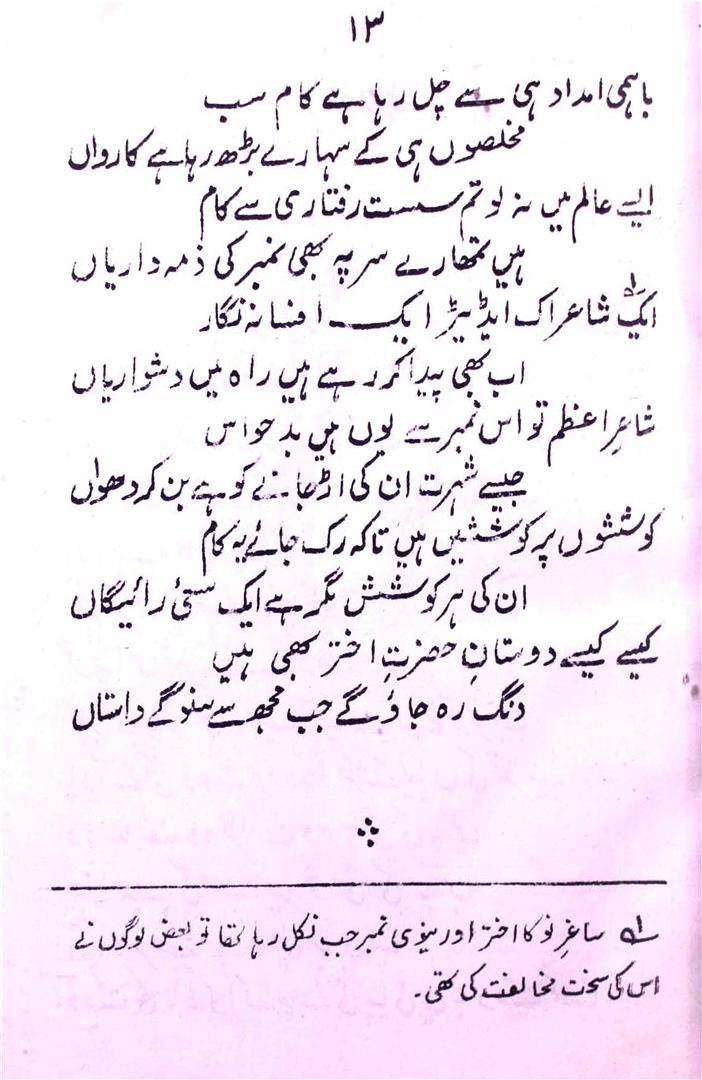 ۱۳
باہمی امداد ہی سے چل رہا ہے کام سب
مخلصوں ہی کے سہارے بڑھ رہا ہے کارواں
ایسے عالم میں نہ لو تم سست رفتاری سے کام
ہیں تمھارے سر پہ بھی نمبر کی ذمہ داریاں
ایک شاعر اک ایڈیٹر ایک افسانہ نگار
اب بھی پیدا کر رہے ہیں راہ میں دشواریاں
شاعرِ اعظم تو اس نمبر سے یوں ہیں بدحواس
جیسے شہرت ان کی اڑ جانے کو ہے بن کر دھواں
کوششوں پر کوششیں ہیں تاکہ رک جائے یہ کام
ان کی ہر کوشش مگر ہے ایک سعئ رائیگاں
کیسے کیسے دوستانِ حضرتِ اختر بھی ہیں
دنگ رہ جاؤ گے جب مجھ سے سنو گے داستاں
۱ ساغرِ نو کا اختر اورینوی نمبر جب نکل رہا تھا تو بعض لوگوں نے
اس کی سخت مخالفت کی تھی۔